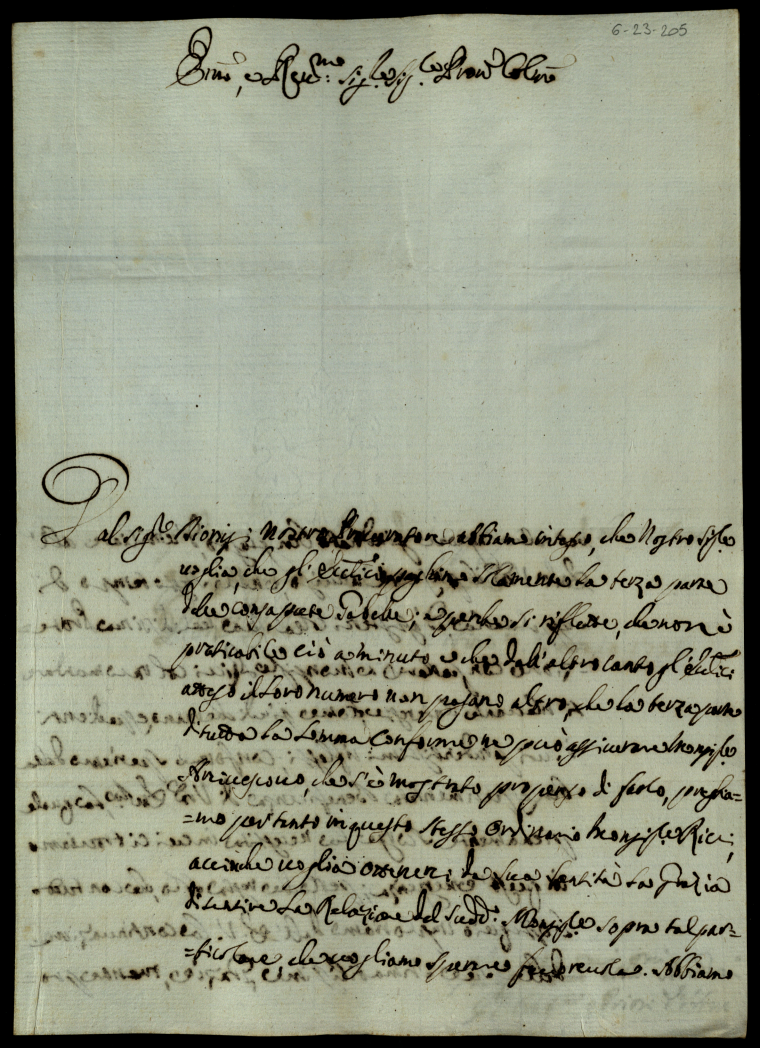 6-23-205
Emo, e Revmo: Sigre Sigre Pron Colmo
Dal Sigre Dionisj nostro Procuratore abbiamo inteso, che Nostro Sigre
voglia, che gli Eccle:ci paghino solamente la terza parte
delle consapute Gabelle; e perche si riflette, che non è
praticabile ciò a minuto, e che dall'altro canto gl'Eccl:ci
atteso il loro numero non passano altro, che la terza parte
di tutta la somma conforme ne può assicurare Monsigre
Arcivescovo, che s'è mostrato propenso di farlo, preghia=
=mo pertanto in questo stesso ordinario Monsigre Ricci,
accioche voglia ottenerci da Sua Santità la grazia
di sentire la Relazione del sudd: Monsigre sopra tal par=
=ticolare, che vogliamo sperare favorevole. Abbiamo